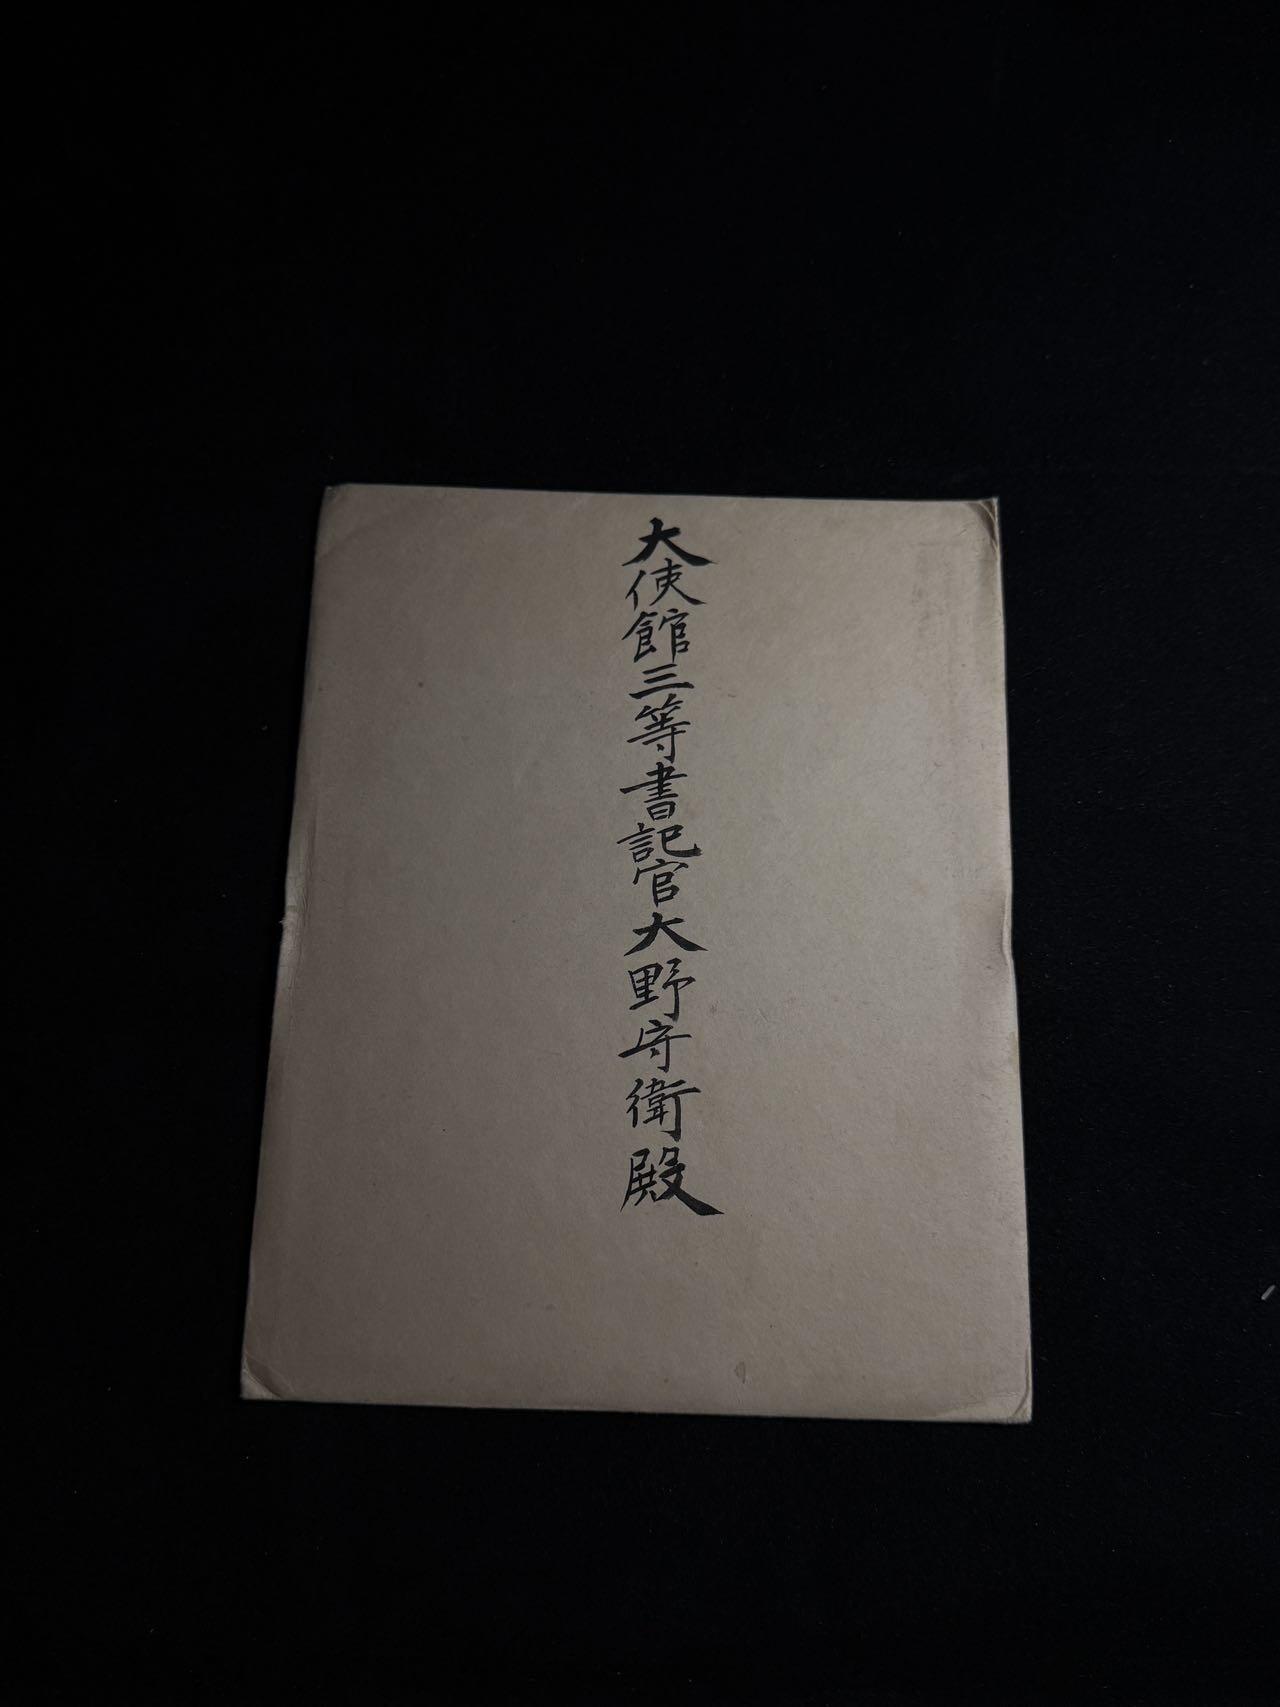 大使館三等書記官大野守衛殿